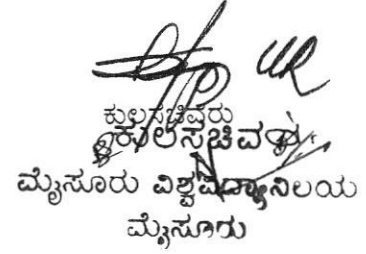 ಕುಲಸಚಿವರು
ಕುಲಸಚಿವರು
ಮೈಸೂರು ವಿಶ್ವವಿದ್ಯಾನಿಲಯ
ಮೈಸೂರು